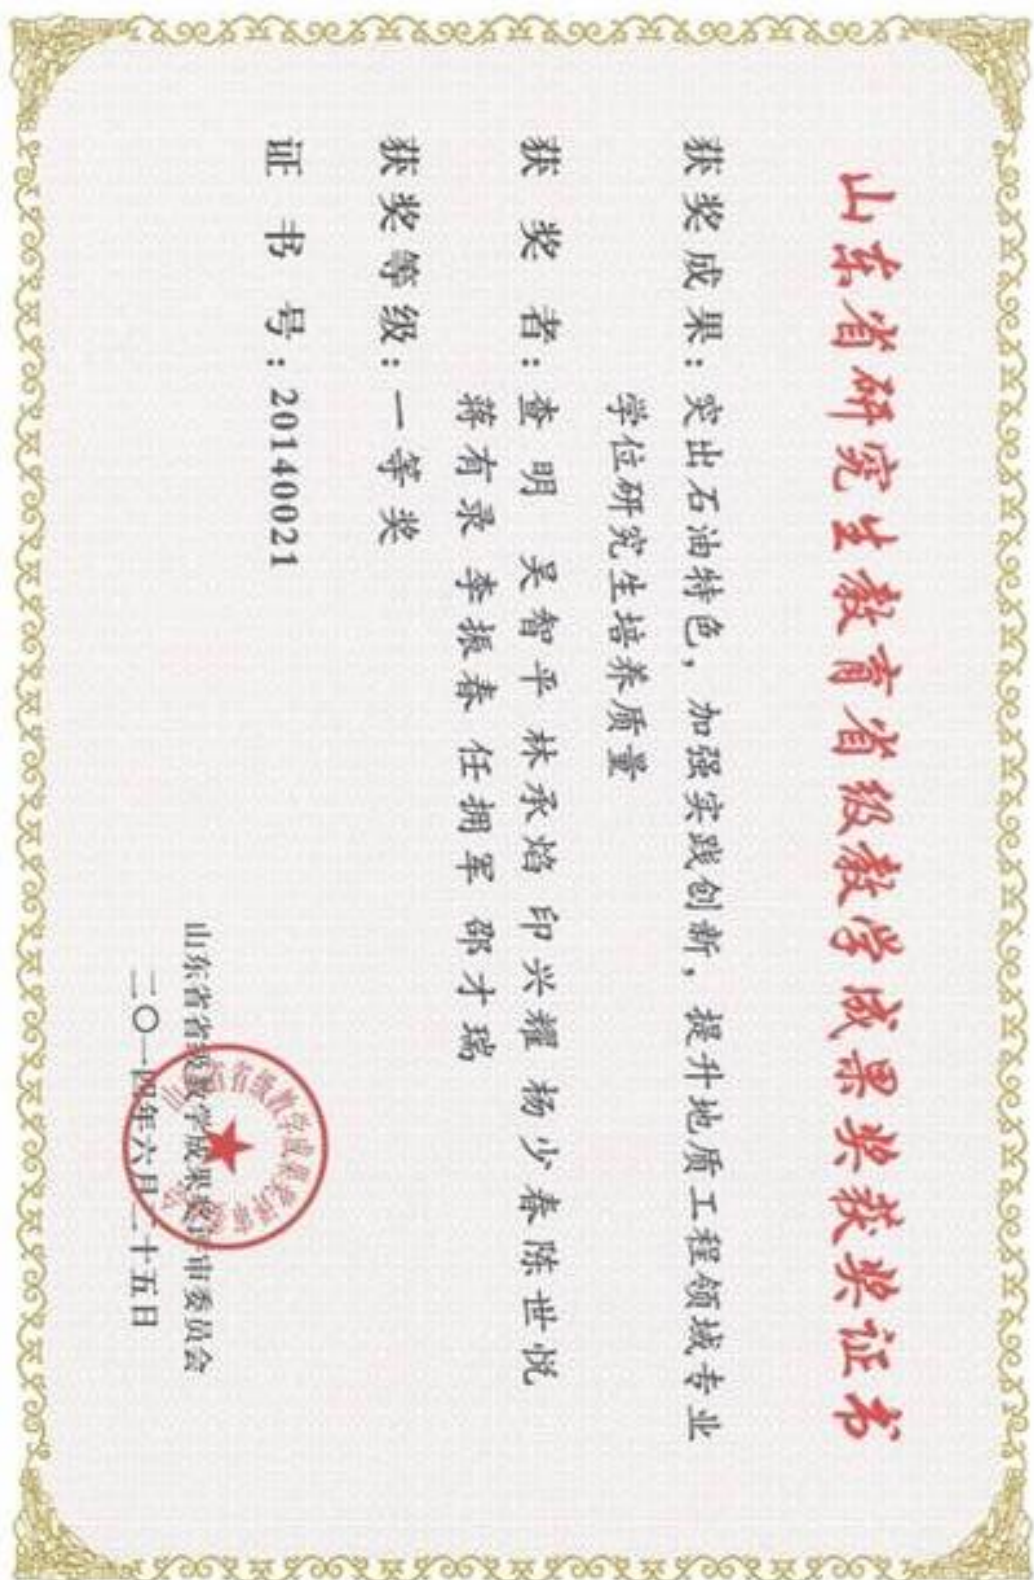 山东省研究生教育省级教学成果奖获奖证书
获奖成果：突出石油特色，加强实践创新，提升地质工程领域专业
学位研究生培养质量
获 奖 者：查 明 吴智平 林承焰 印兴耀 杨少春 陈世悦
蒋有录 李振春 任拥军 邵才瑞
获奖等级：一等奖
证 书 号：20140021
山东省省级教学成果奖评审委员会
二〇一四年六月二十五日